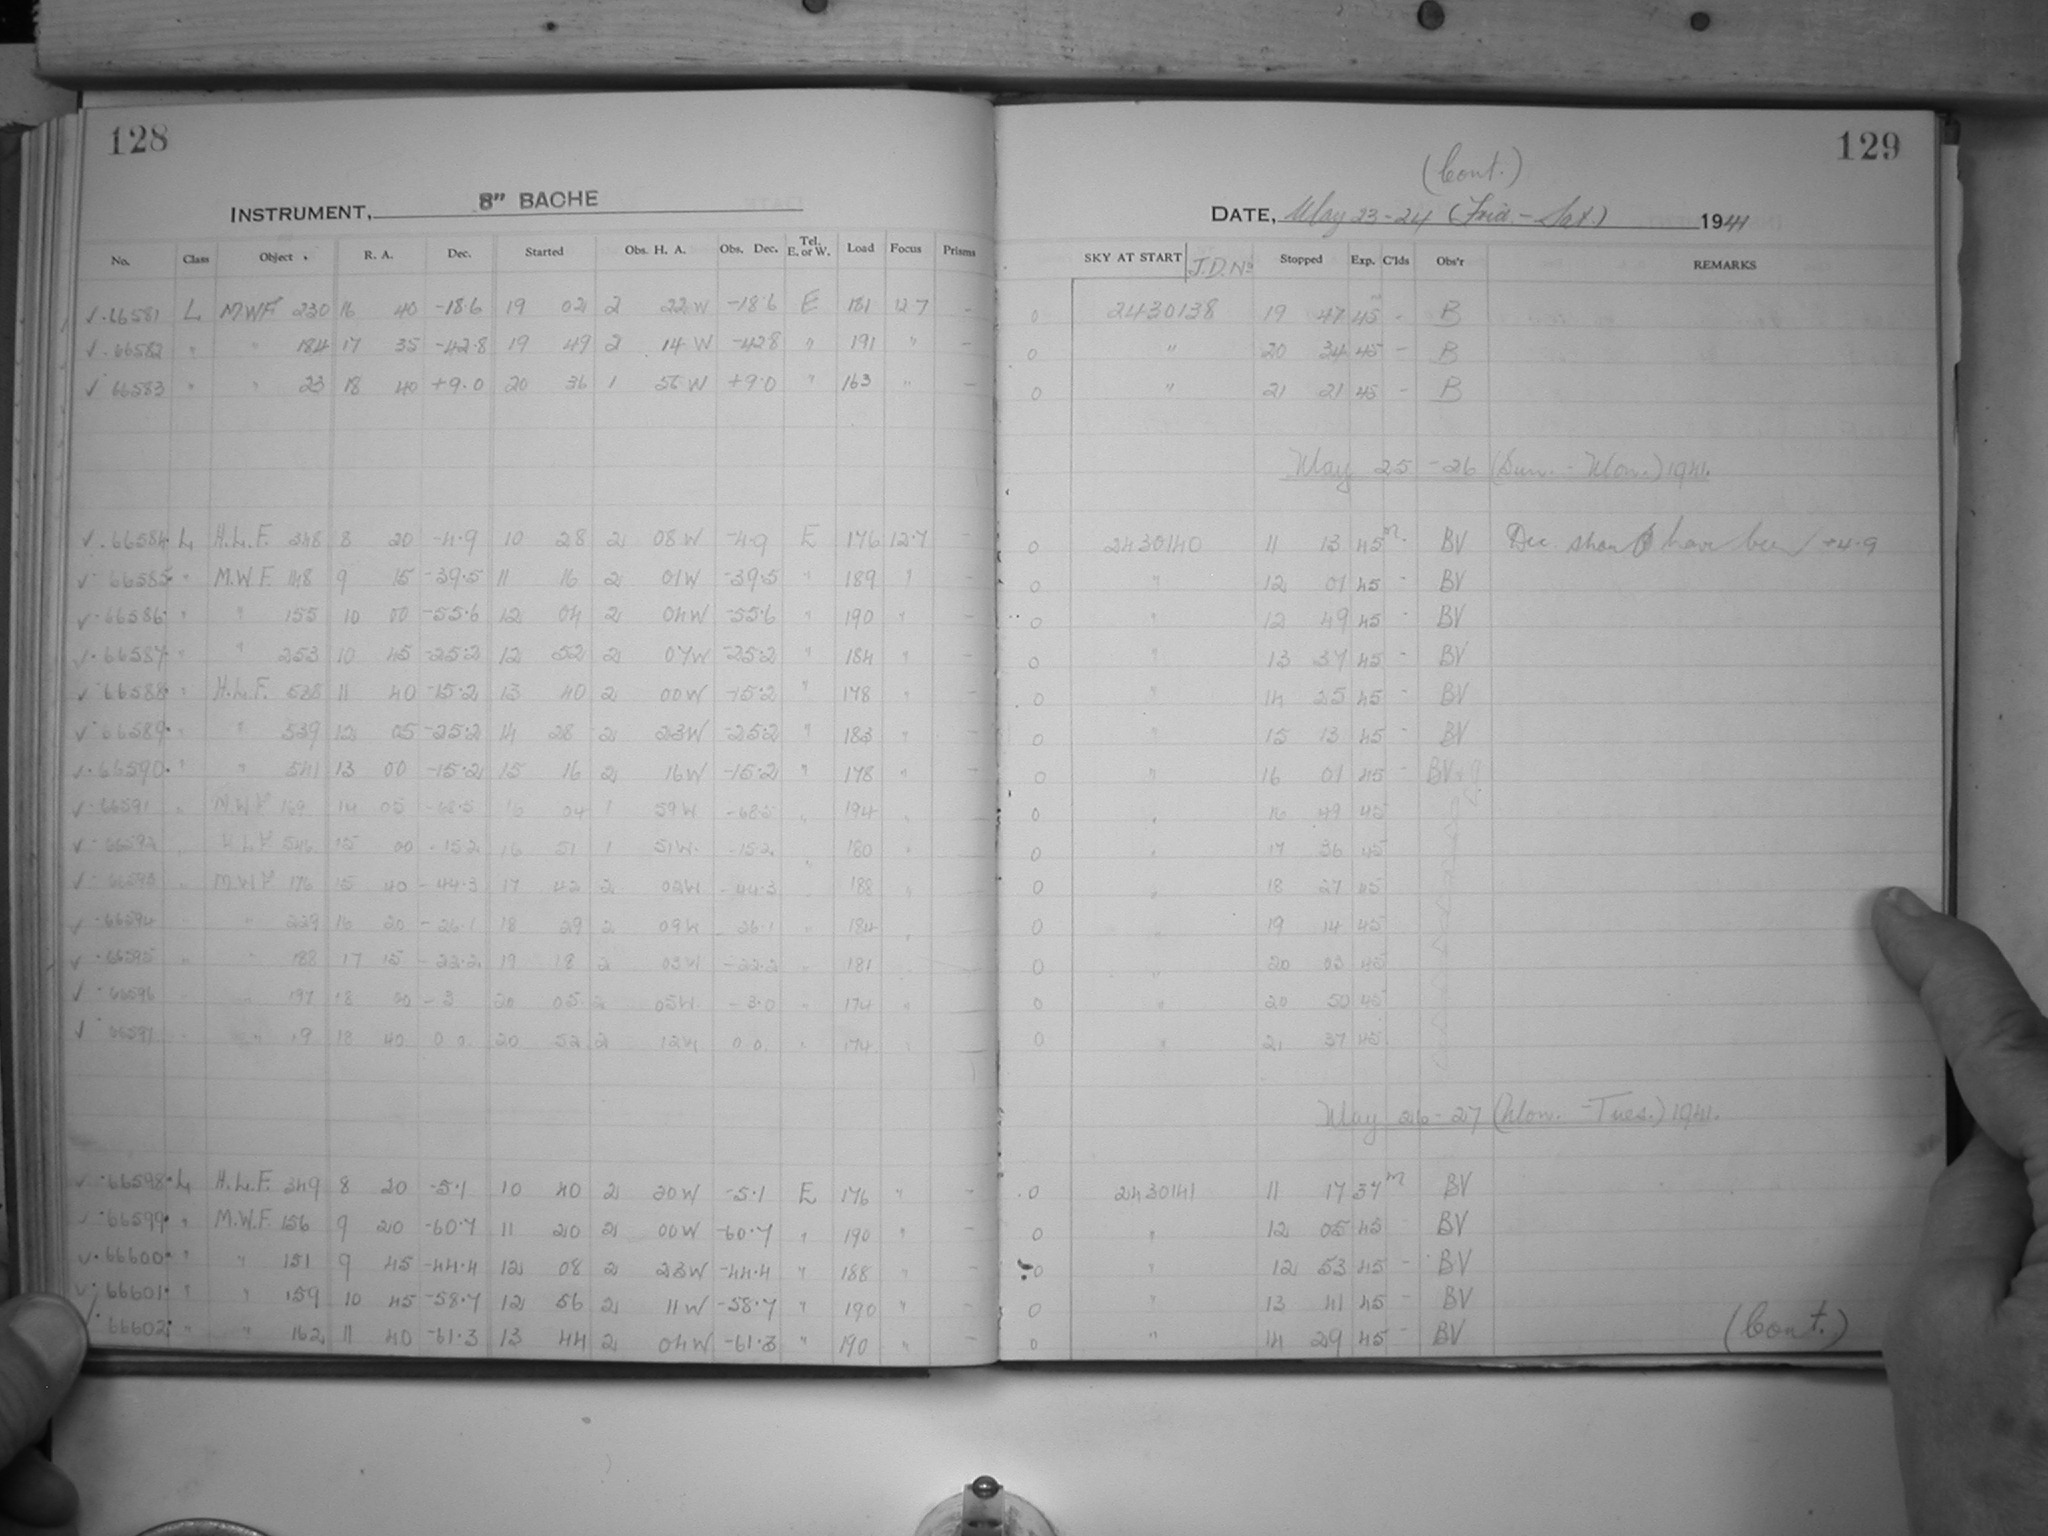 128
INSTRUMENT, 8" BACHE
No. Class Object R. A. Dec. Started Obs. H. A. Obs. Dec. Tel. E. or W. Load Focus Prisms
√ 66581 L M.W.F. 230 16 40 -18.6 19 02 2 22 W -18.6 E 181 12.7 -
√ 66582 " " 184 17 35 -42.8 19 49 2 14 W -42.8 " 191 " -
√ 66583 " " 23 18 40 +9.0 20 36 1 56 W +9.0 " 163 " -
√ 66584 L H.L.F. 348 8 20 -4.9 10 28 2 08 W -4.9 E 176 12.7 -
√ 66585 " M.W.F. 148 9 15 -39.5 11 16 2 01 W -39.5 " 189 " -
√ 66586 " " 155 10 00 -55.6 12 04 2 04 W -55.6 " 190 " -
√ 66587 " " 253 10 45 -25.2 12 52 2 07 W -25.2 " 184 " -
√ 66588 " H.L.F. 11 40 -15.2 13 40 2 00 W -15.2 " 178 " -
√ 66589 " " 539 12 05 -25.2 14 28 2 23 W -25.2 " 183 " -
√ 66590 " " 541 13 00 -15.2 15 16 2 16 W -15.2 " 178 " -
√ 66591 " M.W.F. 169 14 05 -68.5 16 04 1 59 W -68.5 " 194 " -
√ 66592 " H.L.F. 546 15 00 -15.2 16 51 1 51 W -15.2 " 180 " -
√ 66593 " M.W.F. 176 15 40 -44.3 17 42 2 02 W -44.3 " 188 " -
√ 66594 " " 229 16 20 -26.1 18 29 2 09 W -26.1 " 184 " -
√ 66595 " " 188 17 15 -22.2 19 18 2 03 W -22.2 " 181 " -
√ 66596 " " 197 18 00 -3 20 05 2 05 W -3.0 " 174 " -
√ 66597 " " 19 18 40 0 0 20 52 2 12 W 0 0 " 174 " -
√ 66598 L H.L.F. 349 8 20 -5.1 10 40 2 20 W -5.1 E 176 " -
√ 66599 " M.W.F. 156 9 20 -60.7 11 20 2 00 W -60.7 " 190 " -
√ 66600 " " 151 9 45 -44.4 12 08 2 23 W -44.4 " 188 " -
√ 66601 " " 159 10 45 -58.7 12 56 2 11 W -58.7 " 190 " -
√ 66602 " " 162 11 40 -61.3 13 44 2 04 W -61.3 " 190 " -
129
(Cont.)
DATE, May 23-24 (Frid.-Sat.) 1941
SKY AT START J.D. No Stopped Exp. C'lds Obs'r REMARKS
0 2430138 19 47 45m - B
0 " 20 34 45 - B
0 " 21 21 45 - B
May 25-26 (Sun.-Mon.) 1941.
0 2430140 11 13 45m. BV Dec. should have been +4.9
0 " 12 01 45 - BV
0 " 12 49 45 - BV
0 " 13 37 45 - BV
0 " 14 25 45 - BV
0 " 15 13 45 - BV
0 " 16 01 45 - BV
0 " 16 49 45
0 " 17 36 45
0 " 18 27 45
0 " 19 14 45
0 " 20 03 45
0 " 20 50 45
0 " 21 37 45
May 26-27 (Mon.-Tues.) 1941.
0 2430141 11 17 37m BV
0 " 12 05 45 - BV
0 " 12 53 45 - BV
0 " 13 41 45 - BV
0 " 14 29 45 - BV
(Cont.)